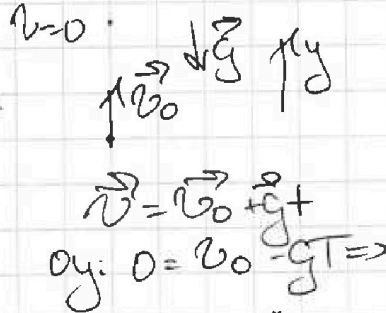 v=0
v⃗₀ ↓g⃗ ↑y
v⃗ = v⃗₀ + g⃗t
oy: 0 = v₀ - gT =>